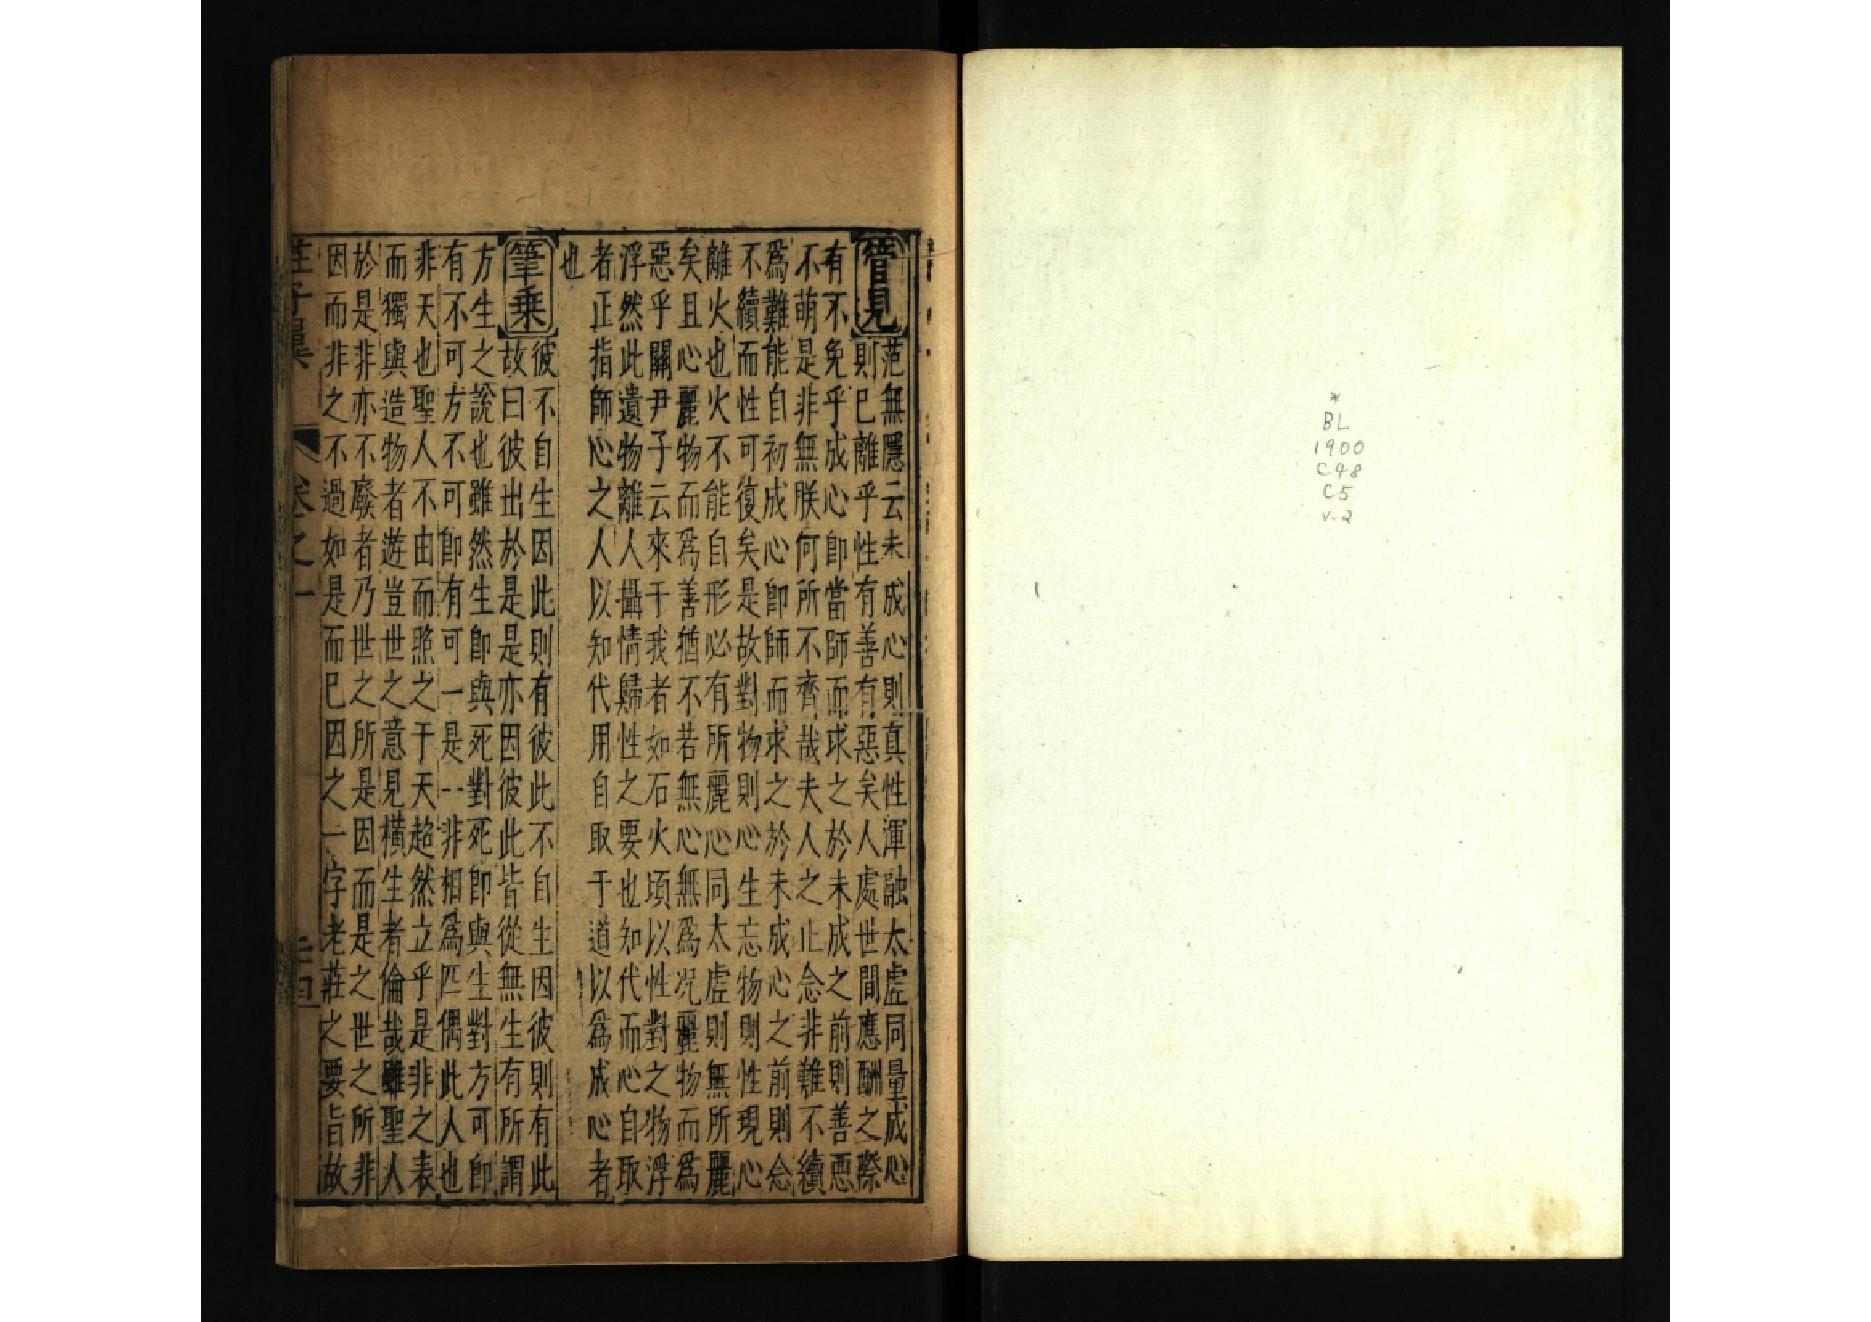 *
BL
1900
C48
C5
v.2
管見
范無隱云未成心則真性渾融太虛同量成心
則已離乎性有善有惡矣人處世間應酬之際
有不免乎成心即當師而求之於未成之前則善惡
不萌是非無朕何所不齊哉夫人之止念非難不續
爲難能自初成心即師而求之於未成心之前則念
不續而性可復矣是故對物則心生忘物則性現心
離火也火不能自形必有所麗心同太虛則無所麗
矣且心麗物而爲善猶不若無心無爲况麗物而爲
惡乎關尹子云來干我者如石火頃以性對之物浮
浮然此遺物離人攝情歸性之要也知代而心自取
者正指師心之人以知代用自取于道以爲成心者
也
筆乗
彼不自生因此則有彼此不自生因彼則有此
故曰彼出於是是亦因彼此皆從無生有所謂
方生之說也雖然生即與死對死即與生對方可即
有不可方不可即有可一是一非相爲匹偶此人也
非天也聖人不由而照之于天超然立乎是非之表
而獨與造物者遊豈世之意見橫生者倫哉雖聖人
於是非亦不廢者乃世之所是因而是之世之所非
因而非之不過如是而已因之一字老莊之要旨故
莊子翼 卷之一